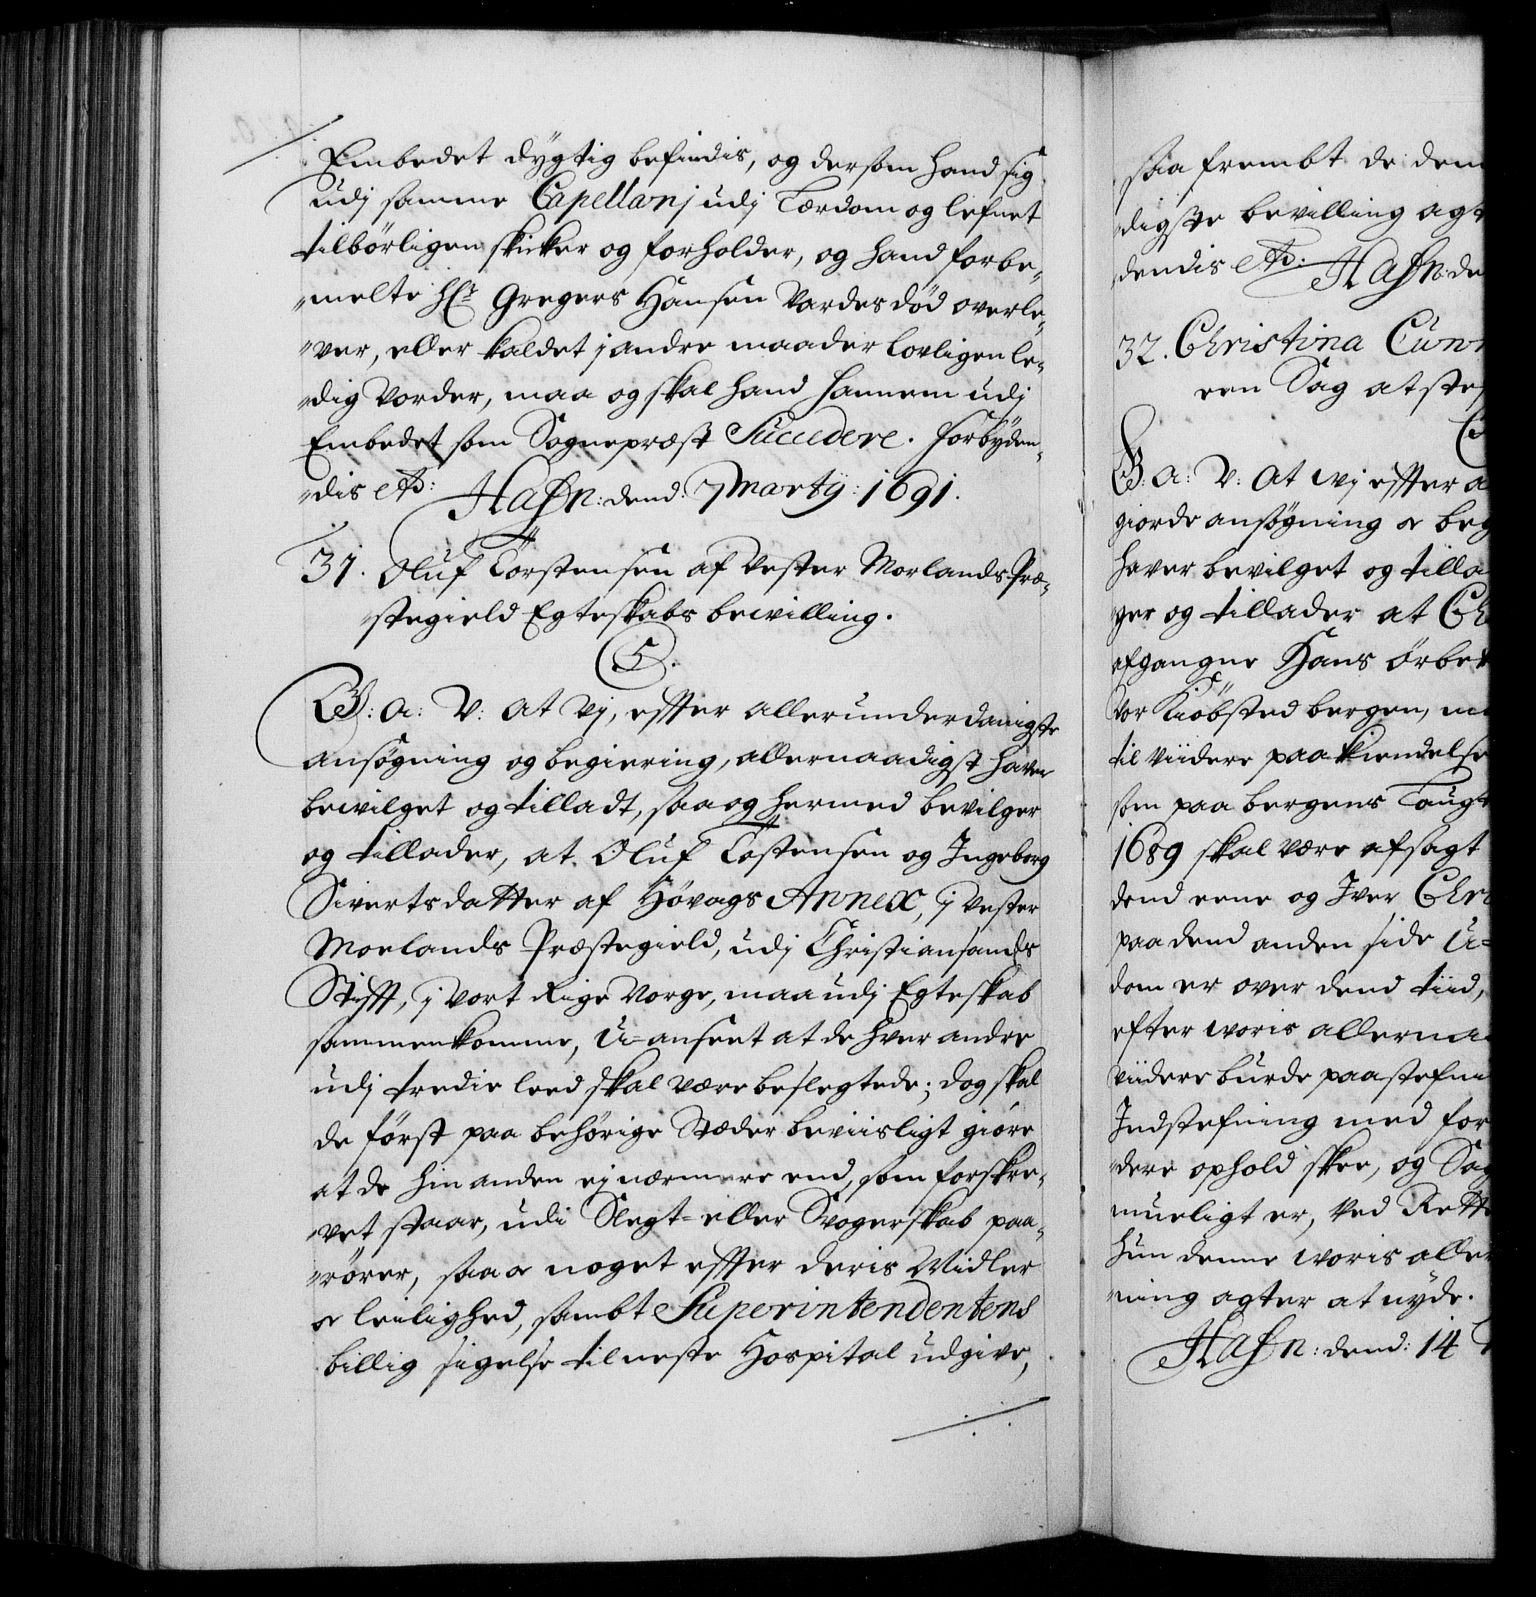 Embedet dygtig befindis, og dersom hand sig
udj samme Capellanj udj Lærdom og lefnet
tilbörligen skicker og forholder, og hand forbe-
melte Hr Gregers Hansen Vardes död overle-
ver, eller kaldet j andre maader lovligen le-
dig vorder, maa og skal hand hannem udj
Embedet som Sognepræst Succedere. Forbyden-
dis etc: Hafn: dend: 7 Martij: 1691.
31. Oluf Torstensen af Vester Morlands Præ-
stegield Egteskabs bewilling.
C5.
G: a: V: at Vj, effter allerunderdanigste
ansøgning og begiering, allernaadigst haver
bewilget og tilladt, saa og hermed bevilger
og tillader, at Oluf Tostensen og Ingeborg
Sivertsdatter af Hövags Annex, j Vester
Morlands Præstegield, udj Christiansands
Stifft, j Vort Rige Norge, maa udj Egteskab
sammenkomme, U-anseet at de hver andre
udj tredie leed skal være beslegtede; dog skal
de först paa behörige Stæder beviisligt giöre
at de hin anden ej nærmere end, som forskre-
vet staar, udi Slegt- eller Svogerskab paa-
rörer, saa og noget effter deris Midler
og leilighed, sambt Superintendentens
billig sigelse til neste Hospital udgive,
saa frembt de den
digste bevilling agt
dendis etc: Hafn: de
32. Christina Cun
een Sag at ste
C
G: a: V: At wj effter a
giorde ansögning og beg
haver bevilget og tilla
ger og tillader at Ch
afgangne Hans örbe
Vor Kiöbsted bergen, m
til viidere paakiendelse
som paa bergens Laugt
1689 skal være afsagt
dend eene og Iver Chri
paa dend anden side U-
dom er over dend tiid,
efter woris allerna
viidere burde paastefne
Indstefning med for
dere ophold skee, og Sag
mueligt er, ved Rette
hun denne woris aller
ning agter at nyde.
Hafn: dend: 14